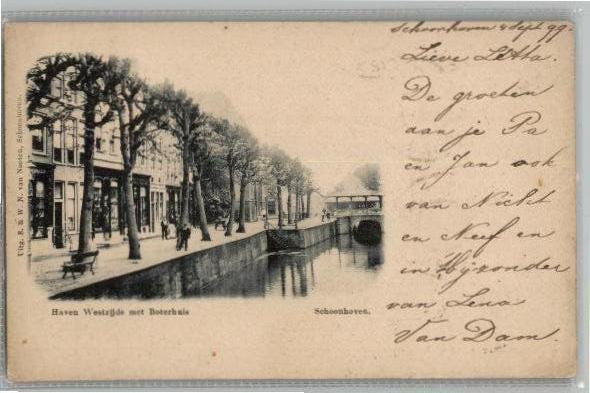 Schoonhoven 4 Sept 99.
Lieve Letta.
De groeten
aan je Pa
en Jan ook
van Nicht
en Neef en
in Bijzonder
van Lena
Van Dam.
Uitg. R. & W. N. van Nooten, Schoonhoven.
Haven Westzijde met Boterhuis
Schoonhoven.